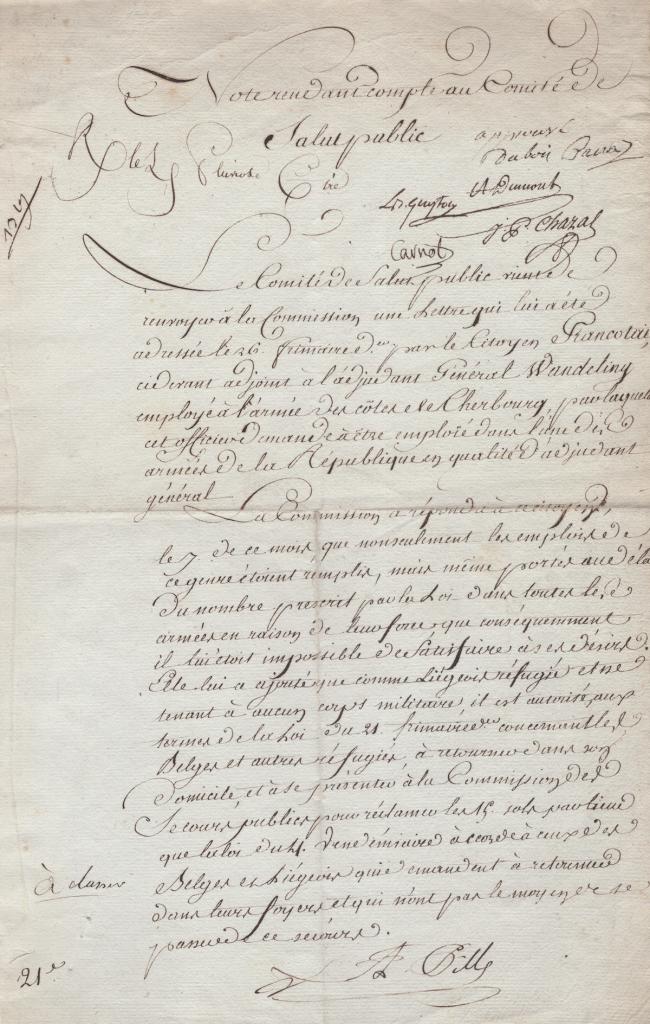 Note rendant compte au Comité de
Salut public
approuvé
R le 5 Pluviose
Dubois
AD Dumont
L.B. Guyton
J P Chazal
Carnot
Le Comité de Salut public vient de
renvoyer à la Commission une Lettre qui lui a été
adressée le 26. frimaire d.er par le Citoyen Francotai
cidevant adjoint à l'adjudant Général Wandeling
employé à l'armée des côtes de Cherbourg, par laquelle
cet officier demande à être emploié dans l'une des
armées de la République en qualité d'adjudant
général
La Commission a répondu à ce citoyen,
le 7 de ce mois, que non seulement les emplois de
ce genre étoient remplis, mais même portés au delà
du nombre prescrit par la Loi dans toutes les
armées en raison de leur force, que conséquemment
il lui étoit impossible de satisfaire à ses désirs.
Elle lui a ajouté que comme Liégeois réfugié et ne
tenant à aucun corps militaire, il est autorisé, aux
termes de la Loi du 21. frimaire d.er concernant les
Belges et autres réfugiés, à retourner dans son
Domicile, et à se présenter à la Commission des
Secours publics pour réclamer les 15. sols par lieue
que la loi du 4. Vendémiaire accorde à ceux des
Belges et Liégeois qui demandent à retourner
dans leurs foyers et qui n'ont pas le moyen de se
passer de ce secours.
à classer
Pille
21e